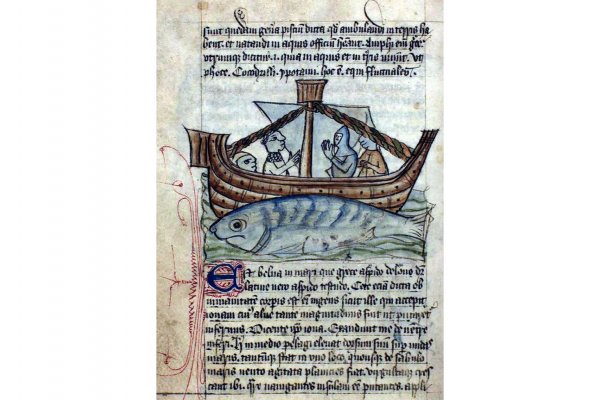 sunt quedam gen̄a pisciū dicta qd̄ ambulandi in terris ha
bent. et natandi in aquis officiū hēant. Amphi em̄ gre
utrumque dicitur. i. quia in aquis et in t̄ris uiuūt. ut
phoce. Cocodrilli. ypotami. hoc ē. equi fluctuales.
Est belua in mari que grece aspido delone dr̄
latine uero aspido testudo. Cete etiā dicta ob
inmanitatem corpis est eī ingens sicut ille qui excepit
ionam cuiꝰ aluꝰ tante magnitudinis fuit ut putaret
infernus. Dicente ip̄o iona. Exaudiuit me de uentre
inferi. in medio pelagi eleuat dorsum suū sup undas
maris. stat in uno loco. quousque de sabulo
maris uento agitata planicies fiat. cres
cant ibi. nauigantes insulam eē putantes. appli